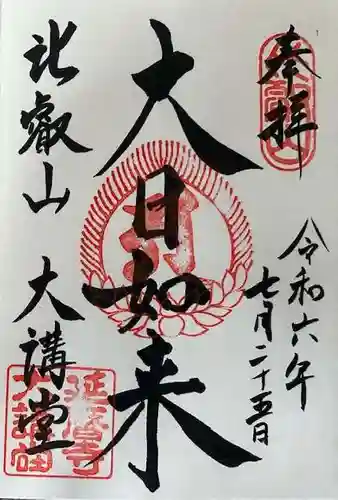 奉拝
令和六年
七月二十五日
大日如来
比叡山 大講堂
延暦寺
大講堂